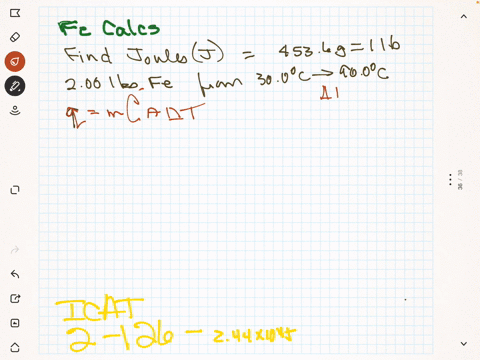 Fe Calcs
Find Joules (J) = 453.6g = 1 lb
2.00 lbs. Fe from 30.0°C → 90.0°C
q = m C ΔT
ICAT
2-126 - 2.44 x 10
38 / 38